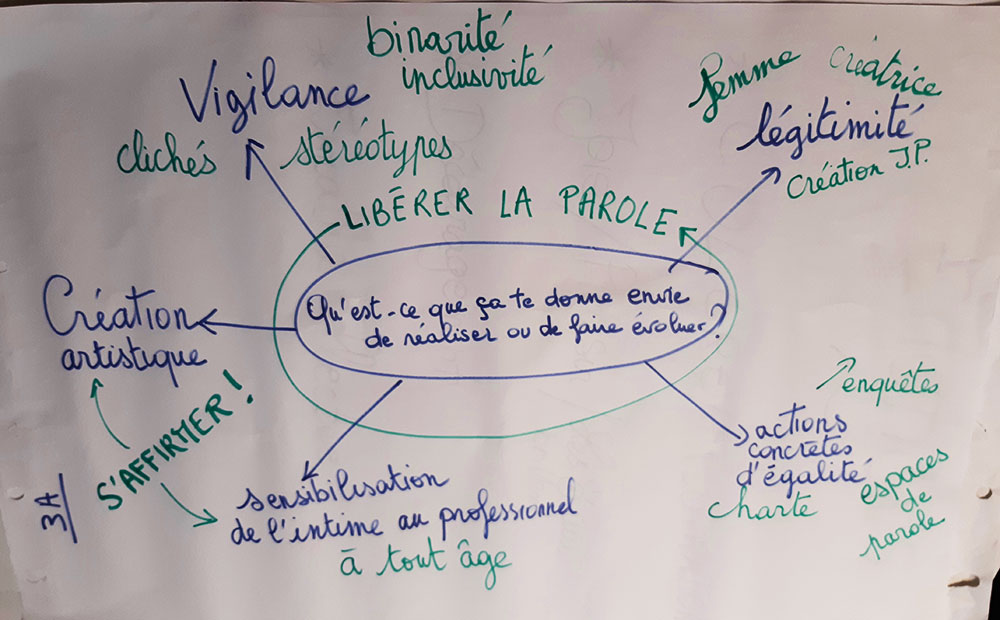 binarité
inclusivité
Vigilance
clichés stéréotypes
femme créatrice
légitimité
Création J.P.
LIBÉRER LA PAROLE
Qu'est-ce que ça te donne envie
de réaliser ou de faire évoluer?
Création
artistique
S'AFFIRMER !
3A
sensibilisation
de l'intime au professionnel
à tout âge
enquêtes
actions
concrètes
d'égalité
charte
espaces
de
parole